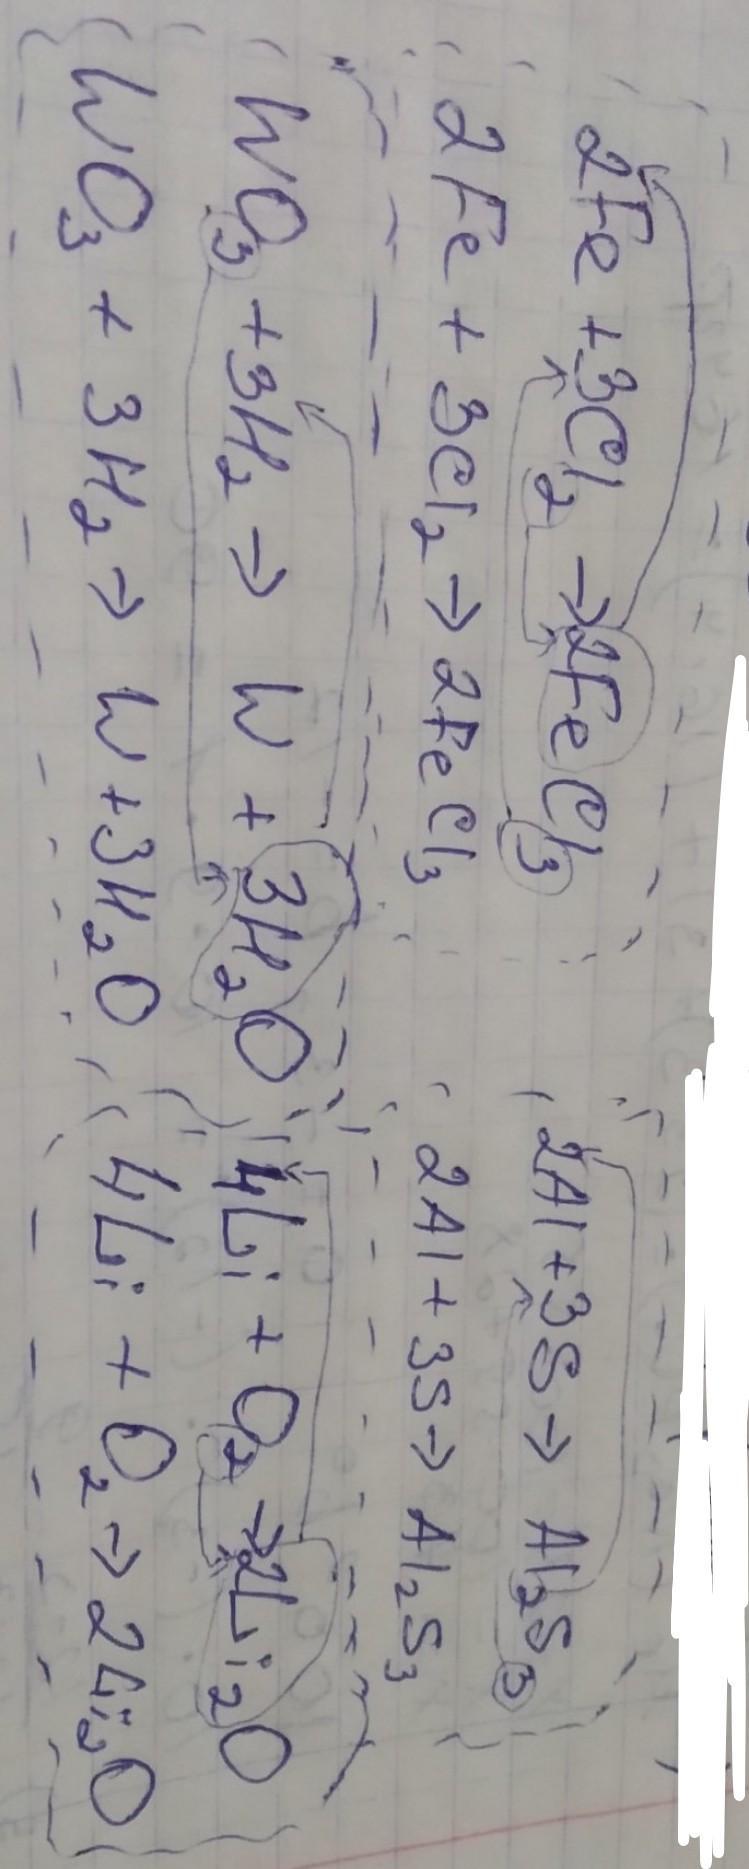 2Fe + 3Cl₂ → 2FeCl₃
2Fe + 3Cl₂ → 2FeCl₃
WO₃ + 3H₂ → W + 3H₂O
WO₃ + 3H₂ → W + 3H₂O
2Al + 3S → Al₂S₃
2Al + 3S → Al₂S₃
4Li + O₂ → 2Li₂O
4Li + O₂ → 2Li₂O